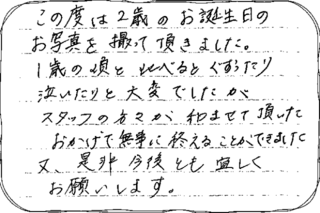 この度は2歳のお誕生日の
お写真を撮って頂きました。
1歳の頃と比べるとぐずったり
泣いたりと大変でしたが
スタッフの方々が、和ませて頂いた
おかげで無事に終えることができました
又、是非今後とも宜しく
お願いします。